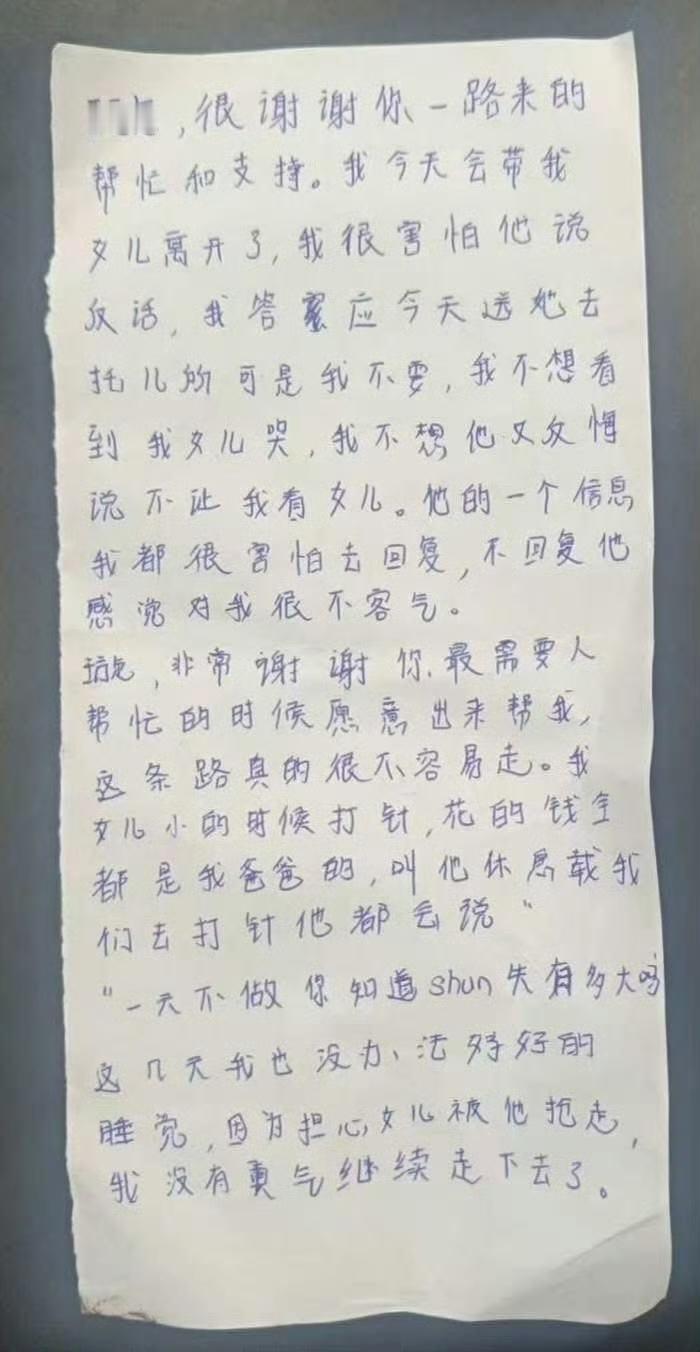 ，很谢谢你一路来的
帮忙和支持。我今天会带我
女儿离开了，我很害怕他说
反话，我答应今天送她去
托儿所可是我不要，我不想看
到我女儿哭，我不想他又反悔
说不让我看女儿。他的一个信息
我都很害怕去回复，不回复他
感觉对我很不客气。
，非常谢谢你、最需要人
帮忙的时候愿意出来帮我，
这条路真的很不容易走。我
女儿小的时候打针，花的钱全
都是我爸爸的，叫他休息载我
们去打针他都会说"
"一天不做你知道shun失有多大吗
这几天我也没办法好好的
睡觉，因为担心女儿被他抢走，
我没有勇气继续走下去了。